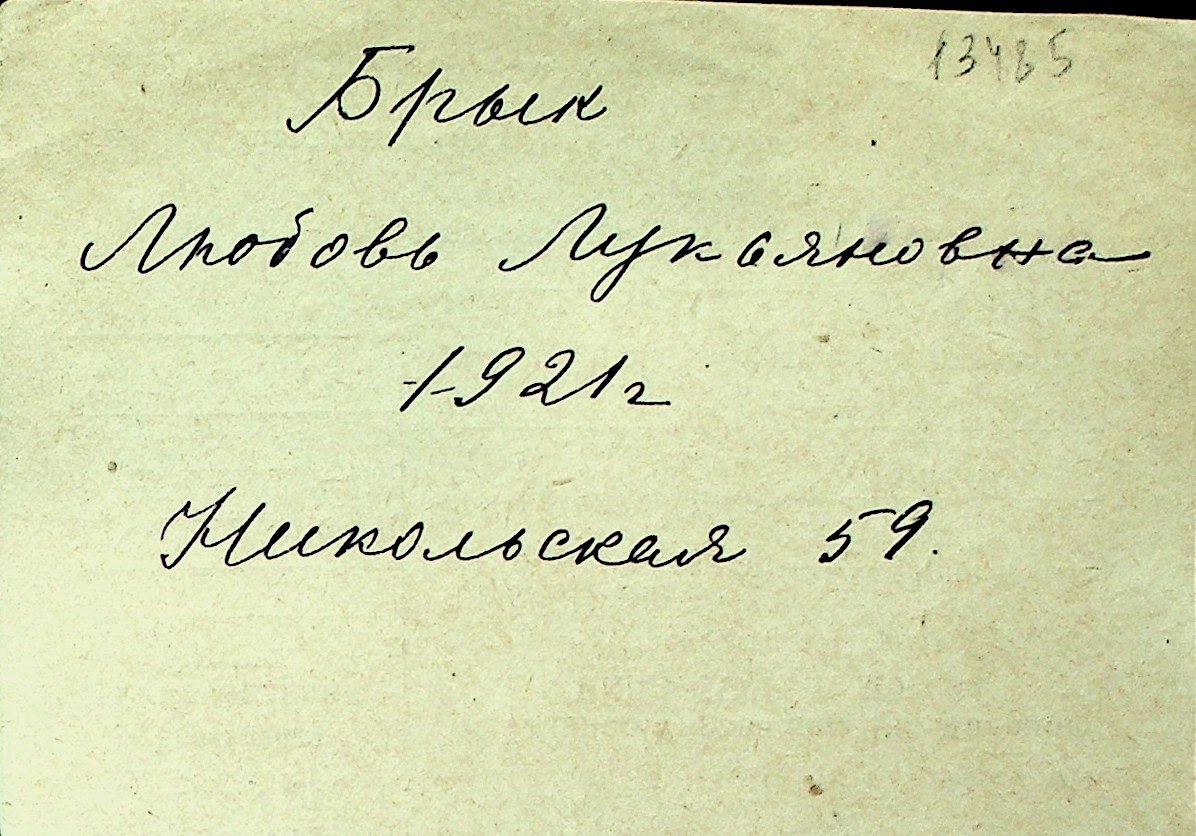 13485
Брык
Любовь Лукьяновна
1921г
Никольская 59.